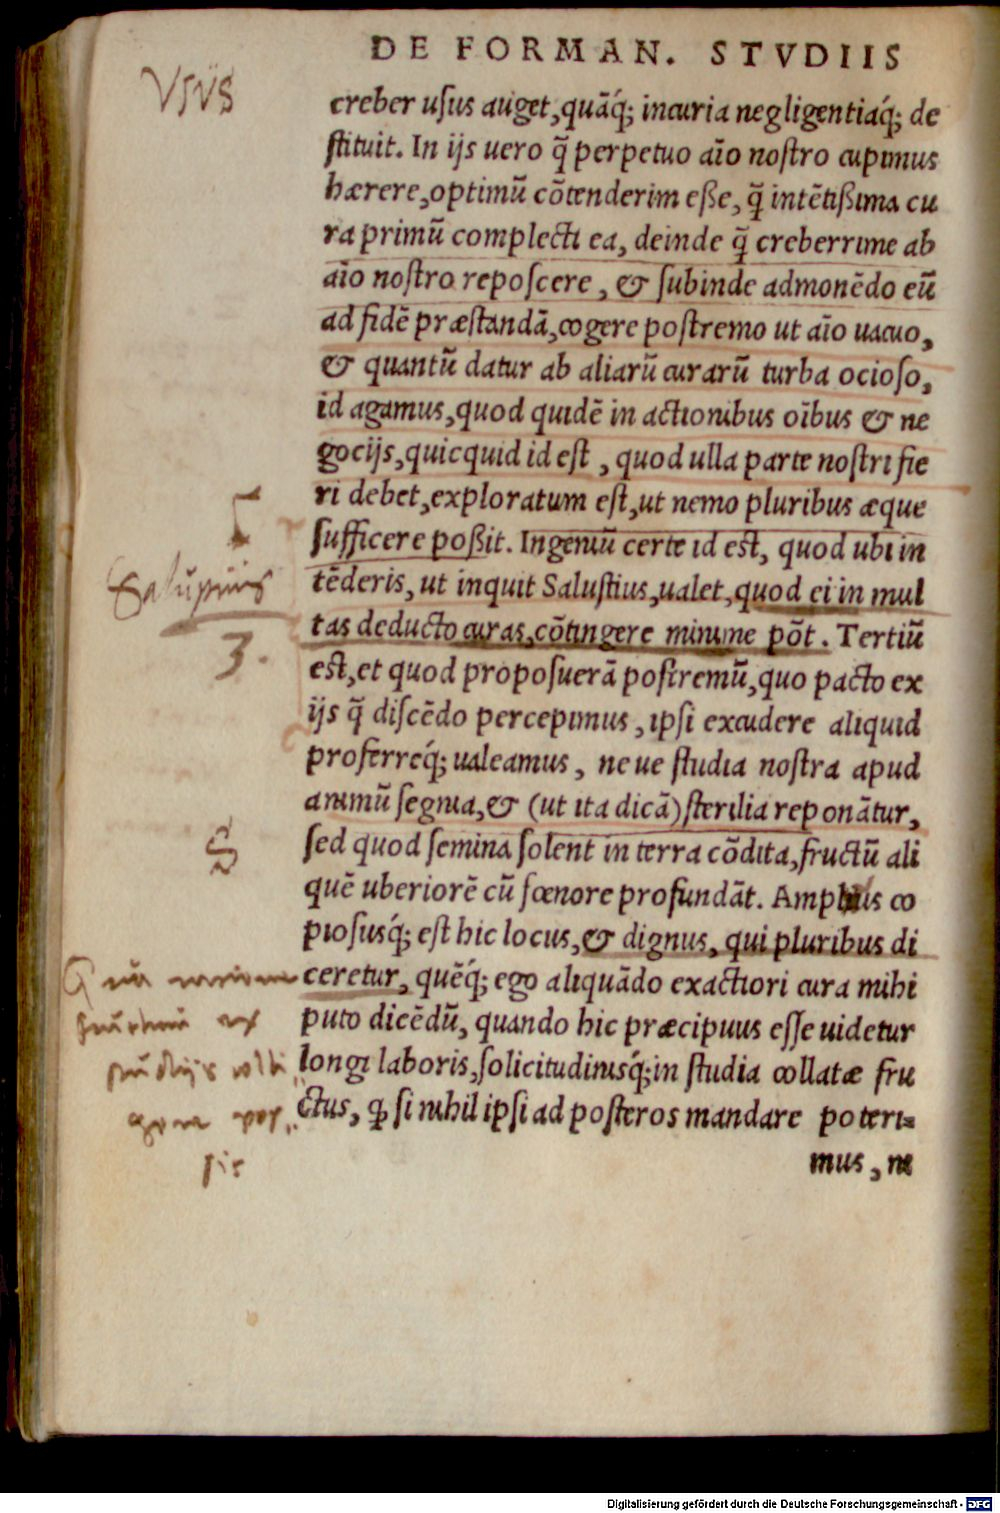 DE FORMAN. STVDIIS
VSVS
creber usus auget, quāq́; incuria negligentiáq́; de
stituit. In ijs uero q̃ perpetuo aīo nostro cupimus
hærere, optimũ cõtenderim eße, q̃ intẽtißima cu
ra primũ complecti ea, deinde q̃ creberrime ab
aīo nostro reposcere, & subinde admonẽdo eũ
ad fidẽ præstandã, cogere postremo ut aīo uacuo,
& quantũ datur ab aliarũ curarũ turba ocioso,
id agamus, quod quidẽ in actionibus oĩbus & ne
gocijs, quicquid id est, quod ulla parte nostri fie
ri debet, exploratum est, ut nemo pluribus æque
sufficere poßit. Ingeniũ certe id est, quod ubi in
tẽderis, ut inquit Salustius, ualet, quod ei in mul
tas deducto curas, cõtingere minime põt. Tertiũ
3.
est, et quod proposuerã postremũ, quo pacto ex
ijs q̃ discẽdo percepimus, ipsi excudere aliquid
proferreq́; ualeamus, ne ue studia nostra apud
animũ segnia, & (ut ita dicã) sterilia reponãtur,
sed quod semina solent in terra cõdita, fructũ ali
quẽ uberiorẽ cũ fœnore profundãt. Amplius co
piosusq́; est hic locus, & dignus, qui pluribus di
ceretur, quẽq́; ego aliquãdo exactiori cura mihi
puto dicẽdũ, quando hic præcipuus esse uidetur
longi laboris, solicitudinisq́; in studia collatæ fru
ctus, ꝙ si nihil ipsi ad posteros mandare poteri=
mus, ne
Digitalisierung gefördert durch die Deutsche Forschungsgemeinschaft - DFG